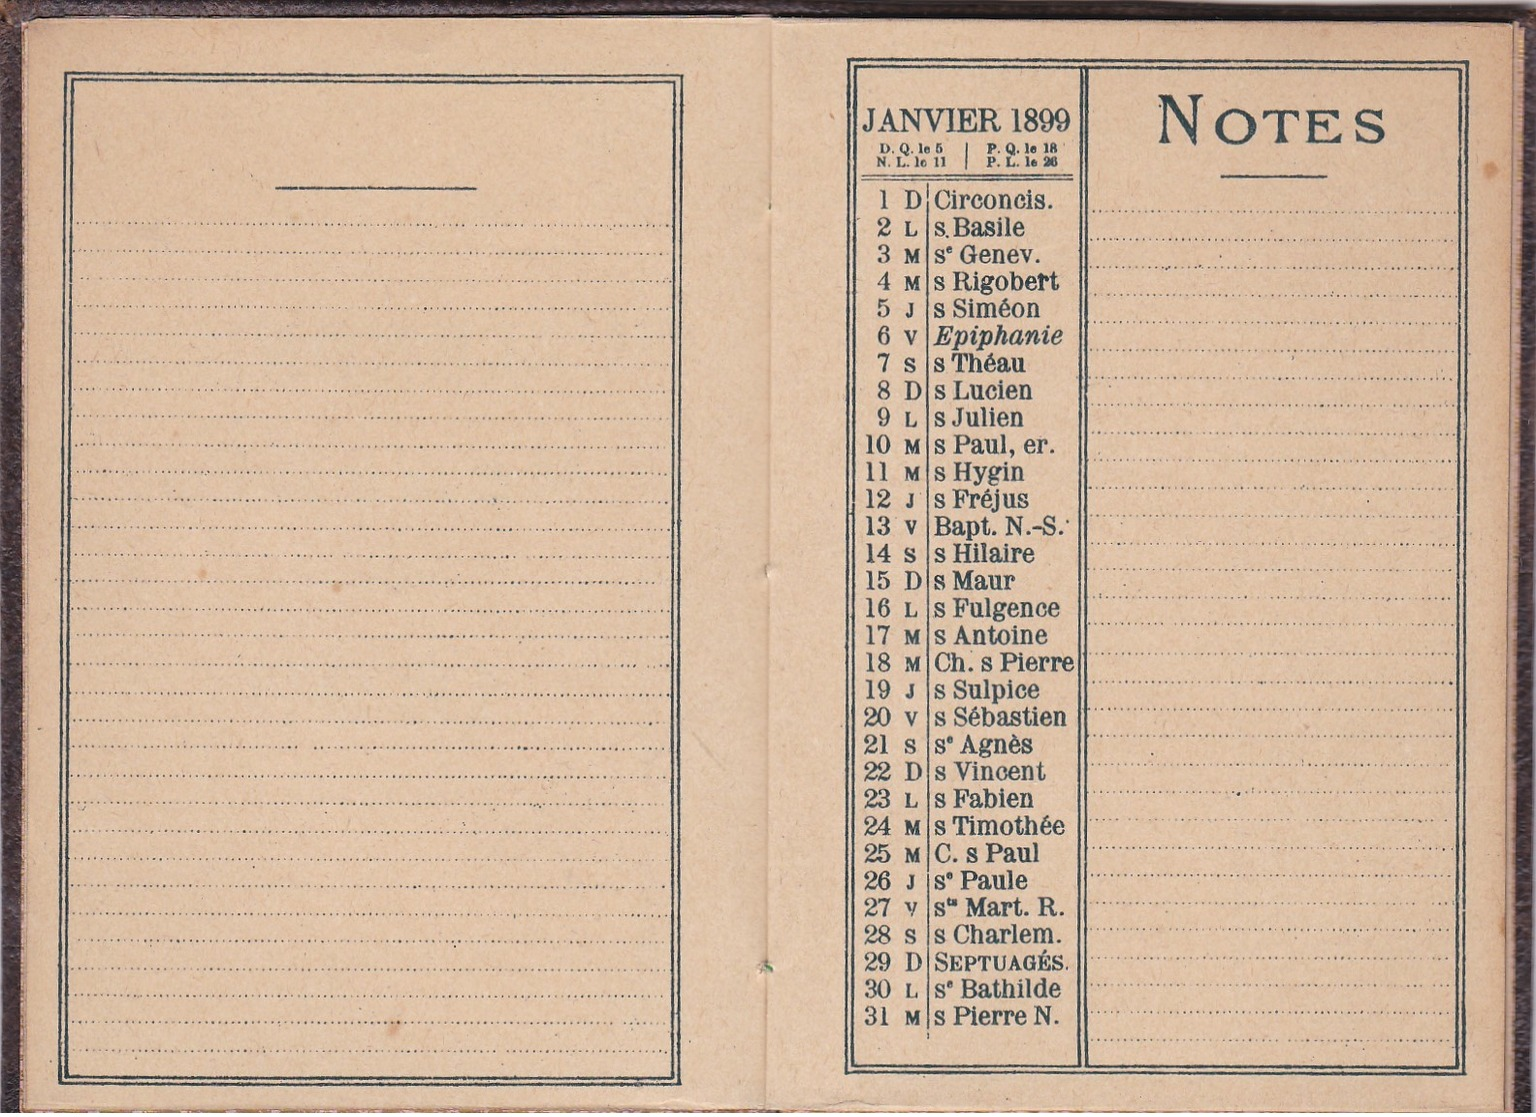 JANVIER 1899
D. Q. le 5 | P. Q. le 18
N. L. le 11 | P. L. le 26
1 D Circoncis.
2 L s. Basile
3 M sᵉ Genev.
4 M s Rigobert
5 J s Siméon
6 V Epiphanie
7 S s Théau
8 D s Lucien
9 L s Julien
10 M s Paul, er.
11 M s Hygin
12 J s Fréjus
13 V Bapt. N.-S.
14 S s Hilaire
15 D s Maur
16 L s Fulgence
17 M s Antoine
18 M Ch. s Pierre
19 J s Sulpice
20 V s Sébastien
21 S sᵉ Agnès
22 D s Vincent
23 L s Fabien
24 M s Timothée
25 M C. s Paul
26 J sᵉ Paule
27 V sᵗˢ Mart. R.
28 S s Charlem.
29 D SEPTUAGÉS.
30 L sᵉ Bathilde
31 M s Pierre N.
NOTES